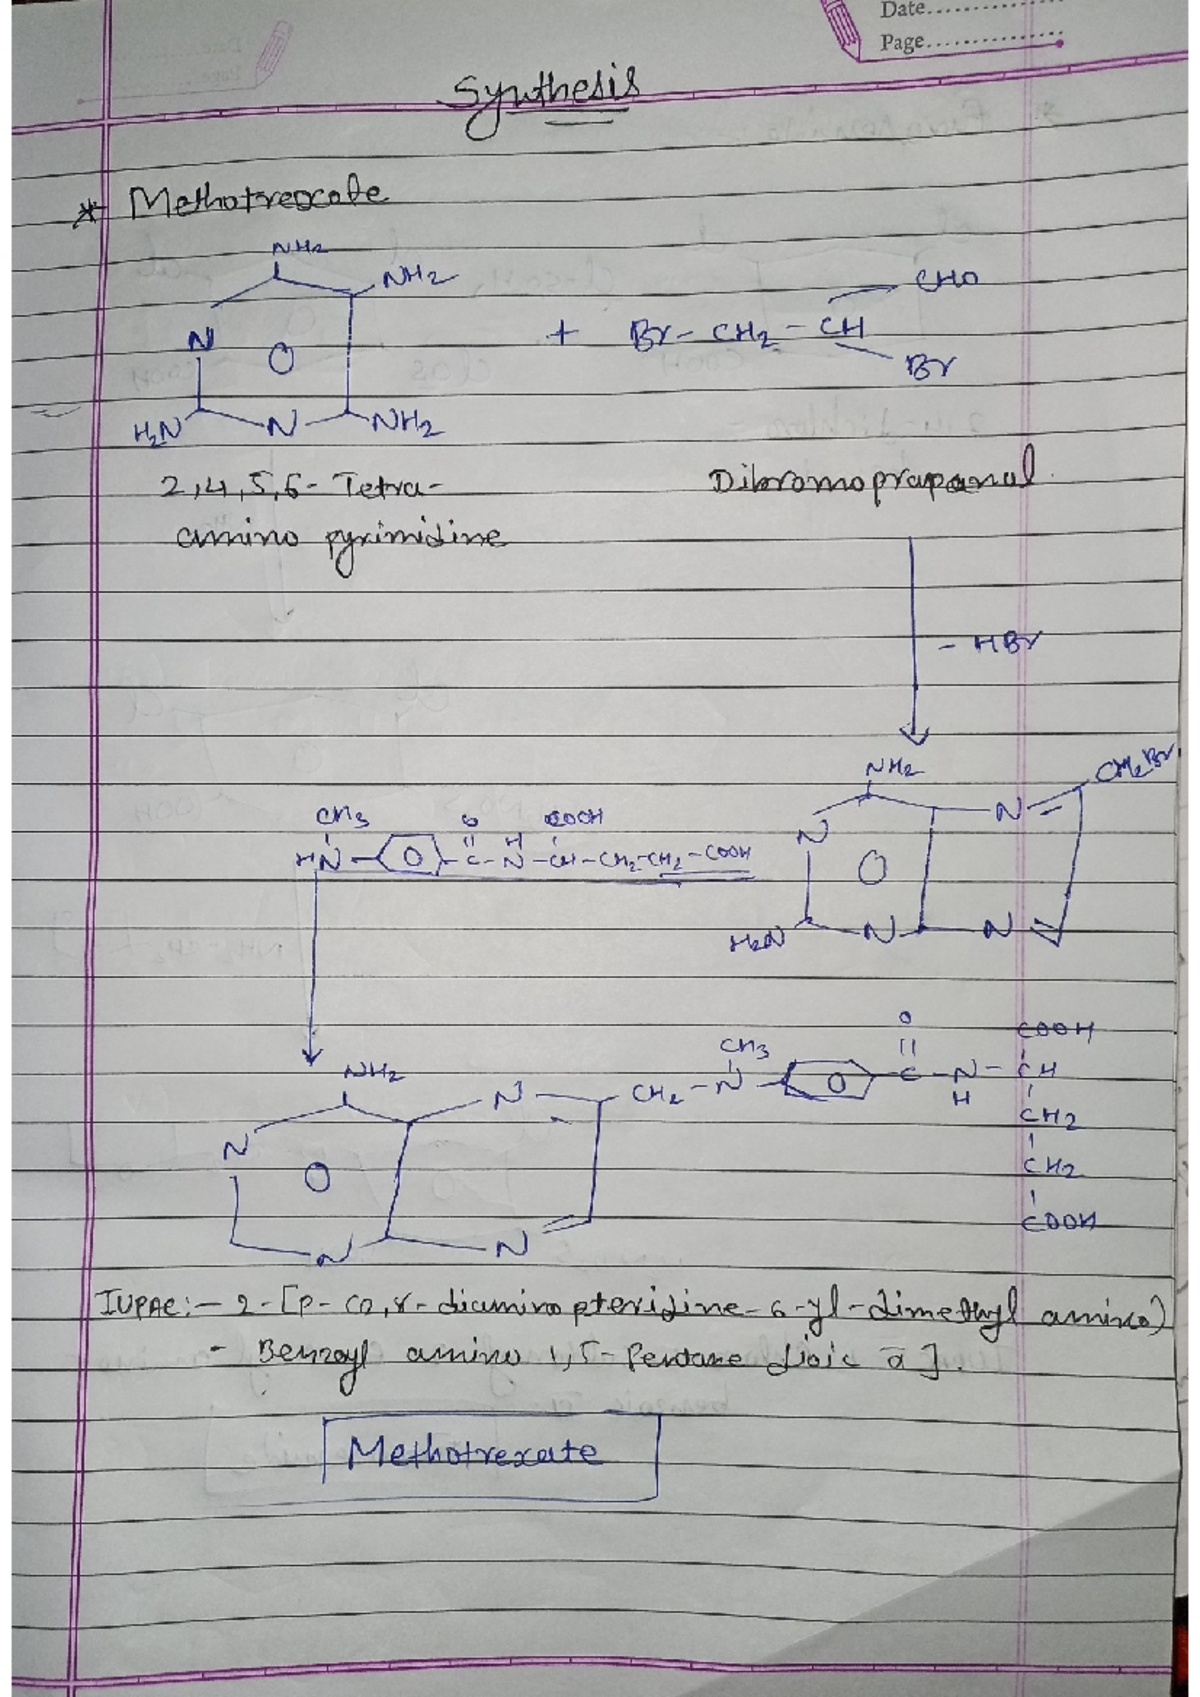 Date..............
Page..............
Synthesis
* Methotrexate
NH2
NH2
N
H2N
N
NH2
+
Br - CH2 - CH
CHO
Br
2,4,5,6 - Tetra-
amino pyrimidine
Dibromopropanal
- HBr
NH2
N
N
CH2Br
H2N
N
N
CH3
HN
O
C - N - CH - CH2 - CH2 - COOH
H
COOH
NH2
N
N
N
N
CH2 - N
CH3
O
C - N - CH
H
COOH
CH2
CH2
COOH
IUPAC:- 2-[P-(2,4-diamino pteridine-6-yl-dimethyl amino)
- Benzoyl amino 1,5-Pentane dioic a].
Methotrexate